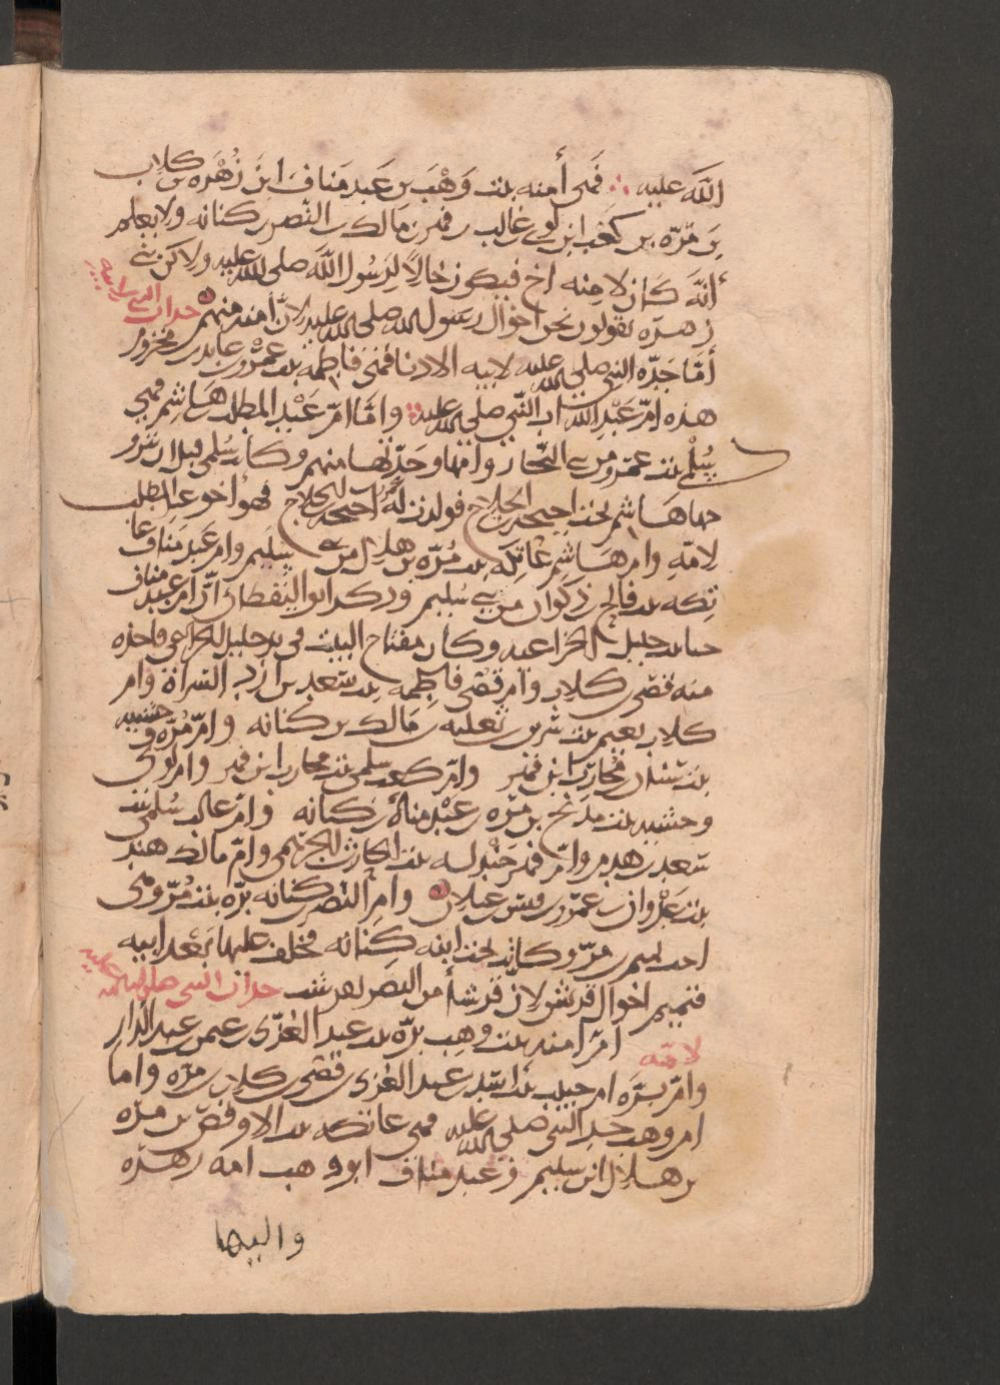 الله عليه ∴ فَهى أمنه بنت وَهْب بن عَبد مَناف ابن زُهْره بن كلاب
بن مُرّه بن كَعْب ابن لوى غالب فهر بن مَالك بن النّضر كنانه ولا يعلم
أنّه كان لامنه اخ فيكون خالاً لِرَسُول الله صلى الله عليه ولاكن بنى
زهره يقولون نحن اخوال رسول الله صلى الله عليه لانّ امنه منهم جدات النبى لابيه
أمّا جَدّه النبى صلى الله عليه لابيه الادنا فهى فاطمه بنت عمْرو بن عايد بن مخزوم
هذه امّ عَبْد الله اب النّبى صلى الله عليه وامّا امّ عَبْد المطلب هاشم فهى
سُلْمى بنت عمْرو من بنى النّجار وامّها وجَدّتها منهم وكانت سُلمى قبل ان تزو
جها هاشم تحت احيحه الجلاح فولدت له عمرو بن احيحه الجلاح فهو اخو عبد المطلب
لامّه وام هاشم عاتِكه بنت مُرّه بن هلال من بنى سليم وام عَبد مَناف عا
تكه بنت فالج ذكوان من بنى سُليم وذكر ابو اليقظان انّ ام عَبد مناف
حبا بنت حليل الخزاعيه وكان مفتاح البيت فى يد حليل الخزاعى فاخذه
منه قصّى كلاب وام قصّى فاطِمه بنت سَعد بن ازد السّراة وام
كلاب نعيم بنت شرير بن ثعلبه بن مَالك بن كنانه وامّ مُرّه وحشيه
بنت شيبان بن محارب ابن فهر وامّ كعب سلمى بنت محارب ابن فهر وام لوى
وحشيه بنت مدلج بن مرّه بن عبْد مناة بن كنانه وامّ غالب سُلمى بنت
سَعد بن هديم وامّ فهر جَنْدله بنت الحارث الجُرْهمى وامّ مالك هند
بنت عَدْوان بن عمْرو بن قيس عيلان وامّ النضر بن كنانه برّه بنت مُرّ وهى
اخت تميم بن مرّ وكانت تحت ابيه كِنانه فخلف عليها بَعْد ابيه
فتميم اخوال قريش لان قرشاً من النضر تقرشت جدات النبى صلى الله عليه
لامّه امّ امنه بنت وهب برّه بنت عبد العُزّى بن عمن بن عبد الدّار
وامّ بَرّه ام حبيب بنت اسَد بن عبد العُزّى بن قصّى كلاب بن مرّه واما
ام وهب جد النبى صلى الله عليه فهى عاتكه بنت الاوقص بن مرّه
بن هلال ابن سليم وعبد مناف ابو وهب امه زهره
واليها